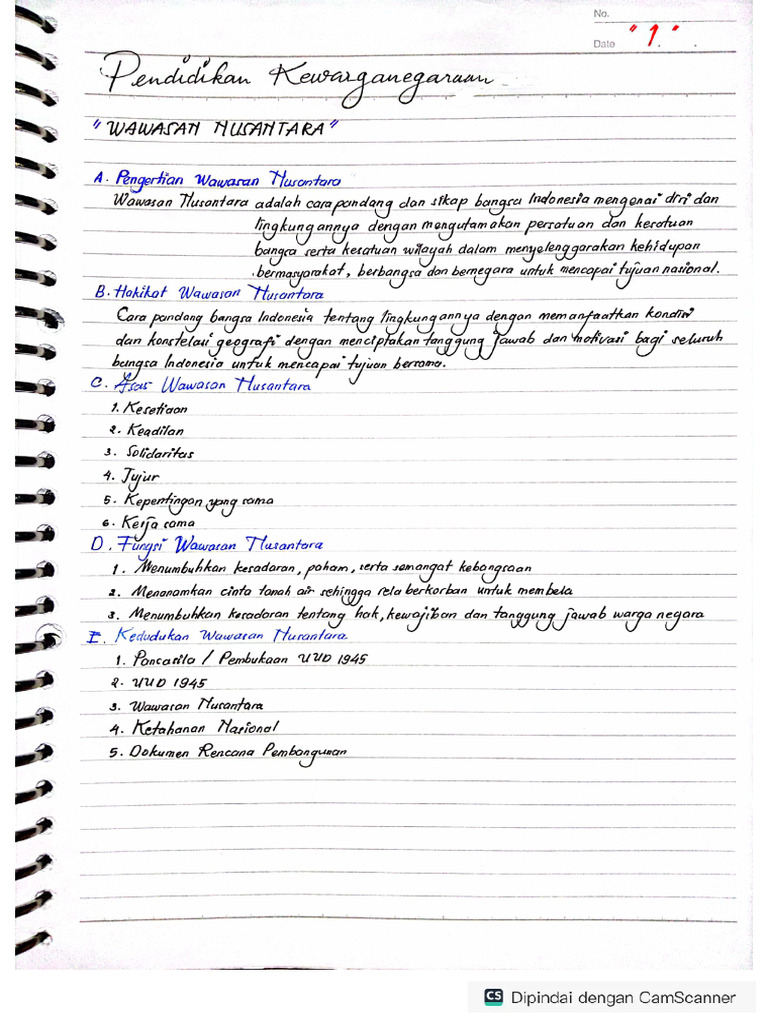 No.
Date " 1 "
Pendidikan Kewarganegaraan
" WAWASAN NUSANTARA "
A. Pengertian Wawasan Nusantara
Wawasan Nusantara adalah cara pandang dan sikap bangsa Indonesia mengenai diri dan
lingkungannya dengan mengutamakan persatuan dan kesatuan
bangsa serta kesatuan wilayah dalam menyelenggarakan kehidupan
bermasyarakat, berbangsa dan bernegara untuk mencapai tujuan nasional.
B. Hakikat Wawasan Nusantara
Cara pandang bangsa Indonesia tentang lingkungannya dengan memanfaatkan kondisi
dan konstelasi geografi dengan menciptakan tanggung jawab dan motivasi bagi seluruh
bangsa Indonesia untuk mencapai tujuan bersama.
C. Asas Wawasan Nusantara
1. Kesetiaan
2. Keadilan
3. Solidaritas
4. Jujur
5. Kepentingan yang sama
6. Kerja sama
D. Fungsi Wawasan Nusantara
1. Menumbuhkan kesadaran, paham, serta semangat kebangsaan
2. Menanamkan cinta tanah air sehingga rela berkorban untuk membela
3. Menumbuhkan kesadaran tentang hak, kewajiban dan tanggung jawab warga negara
E. Kedudukan Wawasan Nusantara
1. Pancasila / Pembukaan UUD 1945
2. UUD 1945
3. Wawasan Nusantara
4. Ketahanan Nasional
5. Dokumen Rencana Pembangunan
CS Dipindai dengan CamScanner